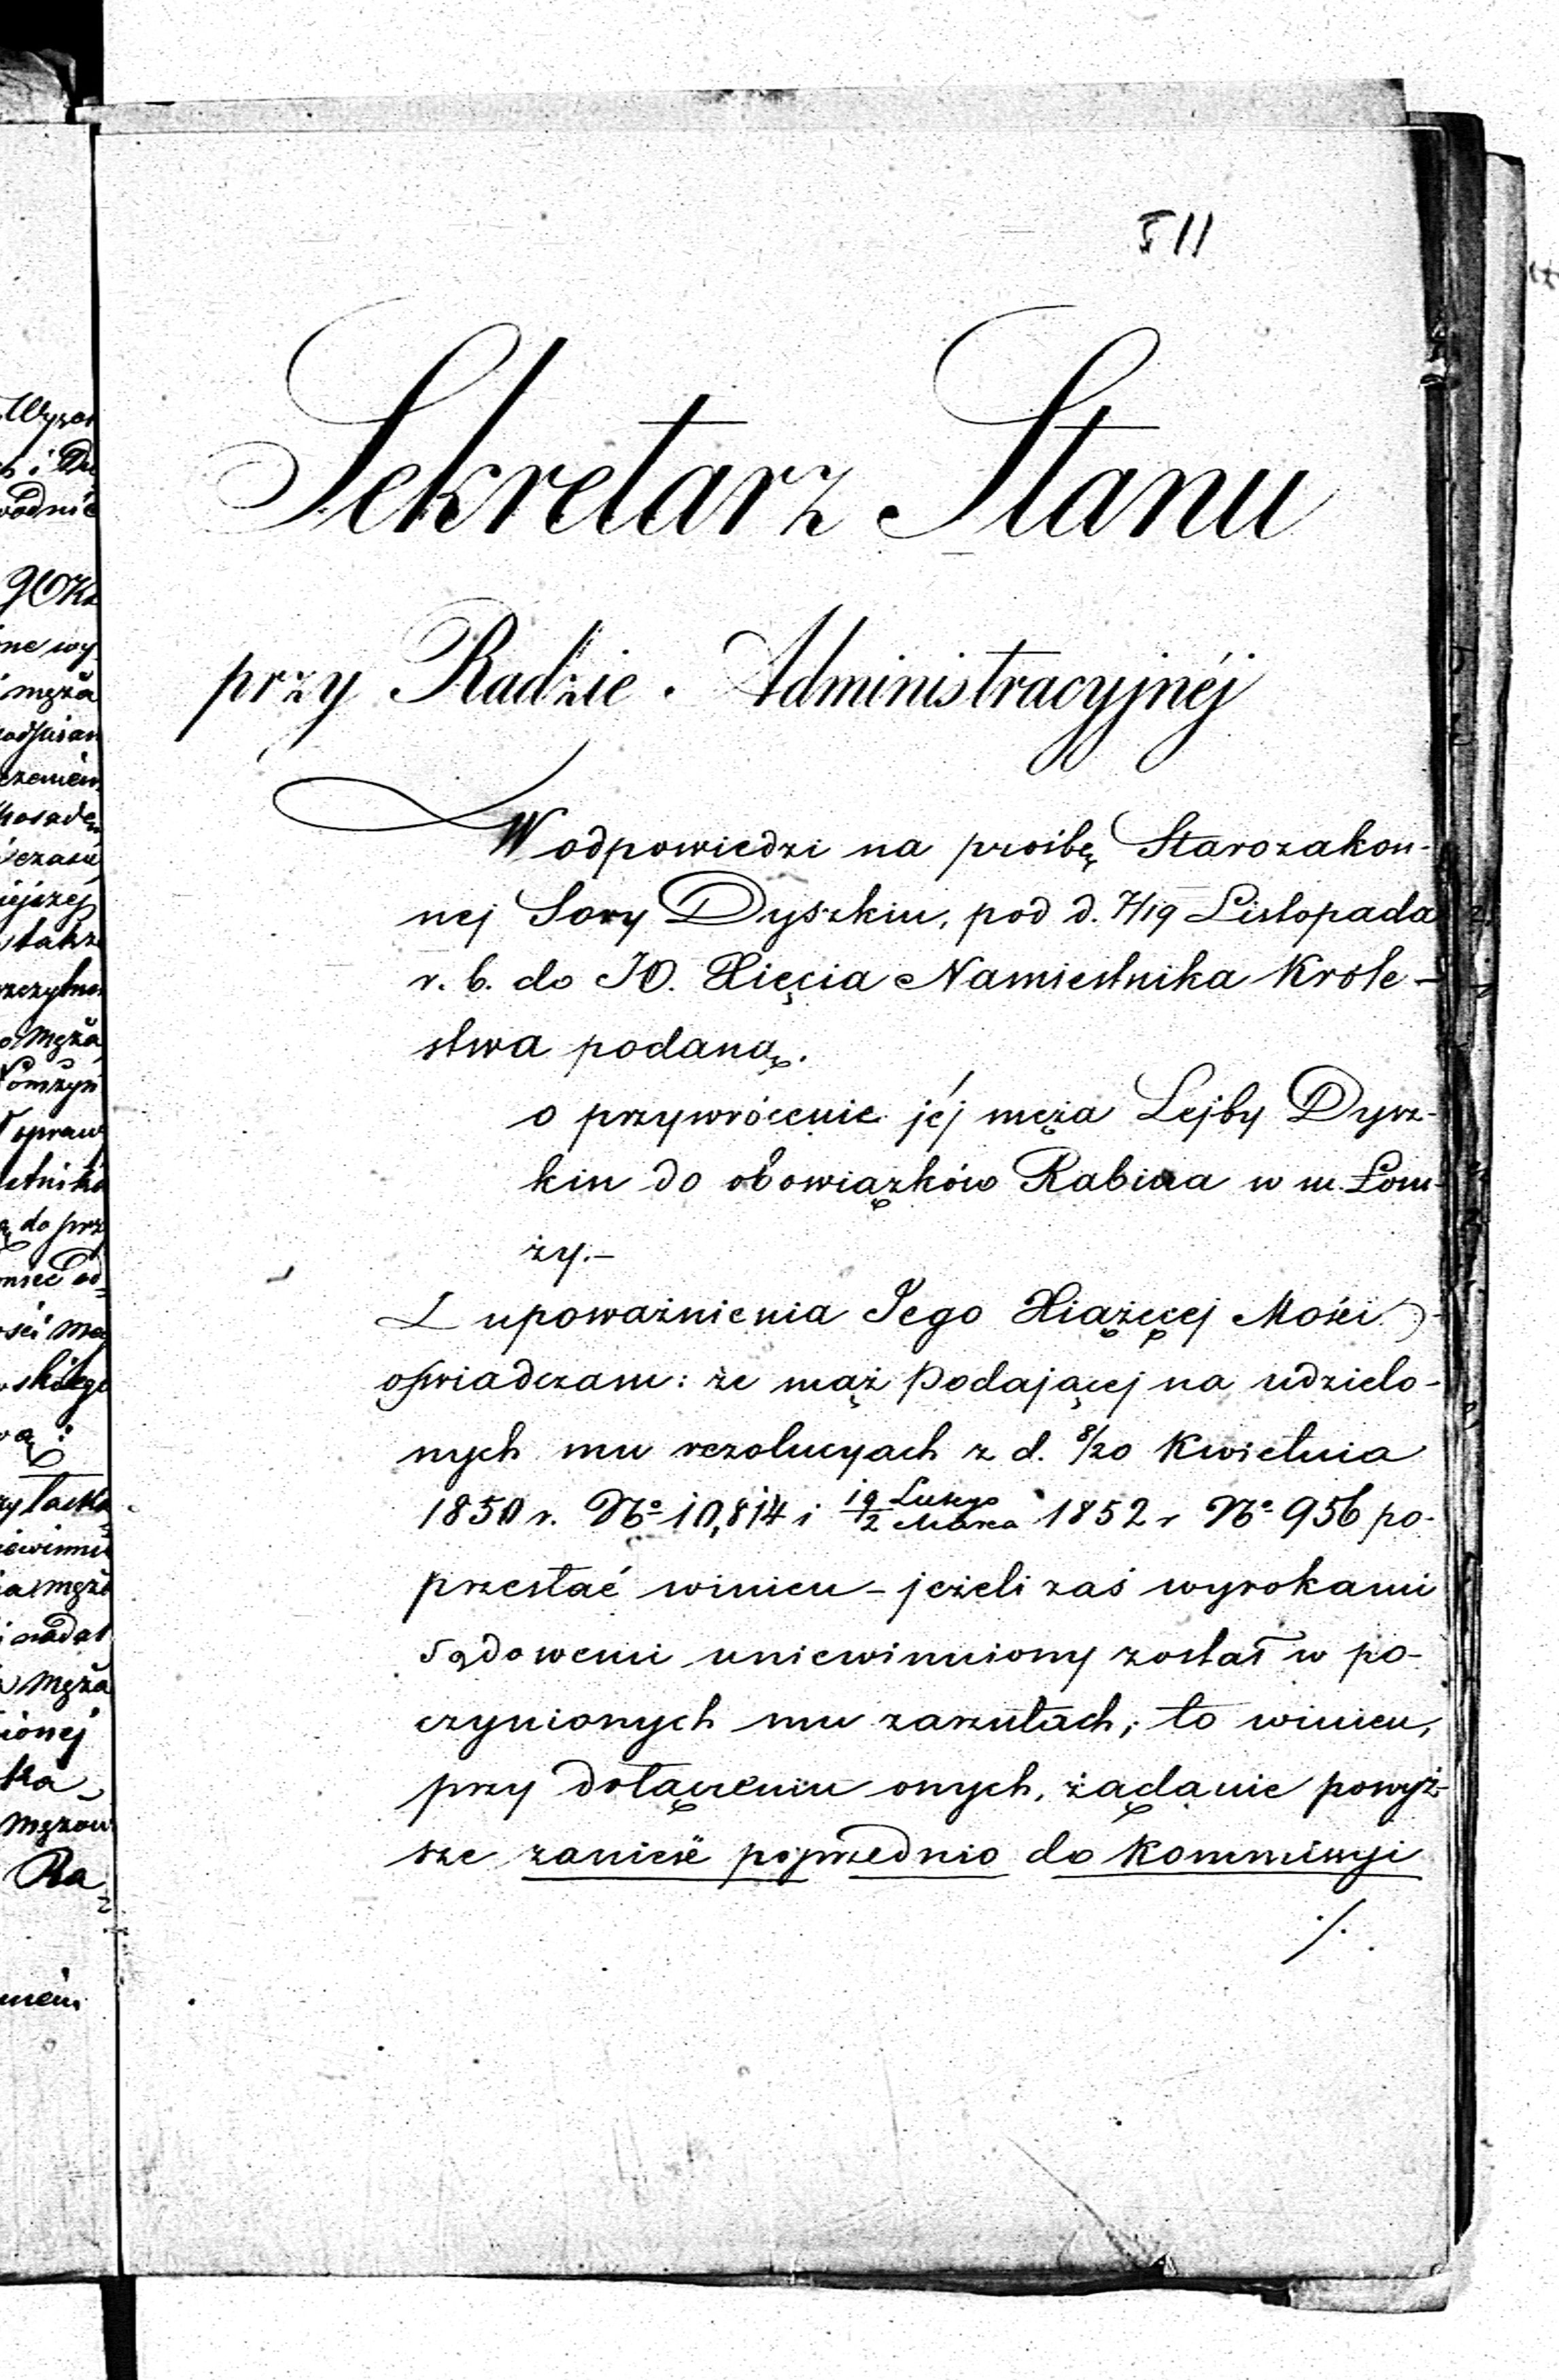 511
Sekretarz Stanu
przy Radzie Administracyjnéj
W odpowiedzi na prośbę Starozakon-
nej Sory Dyszkin, pod d. 7/19 Listopada
r. b. do JO. Xięcia Namiestnika Krole-
stwa podaną.
o przywrócenie jéj męża Lejby Dysz-
kin do obowiązków Rabina w m. Łom-
ży.-
Z upoważnienia Jego Xiążęcej Mości
oświadczam: że mąż podającej na udzielo-
nych mu rezolucyach z d. 8/20 Kwietnia
1850 r. No 10,814 i 19 Lutego / 2 Marca 1852 r No 956 po-
przestać winien - jeżeli zaś wyrokami
sądowemi uniewinniony został w po-
czynionych mu zarzutach, to winien,
przy dołączeniu onych, żądanie powyż-
sze zanieść poprzednio do Kommissyi
./.